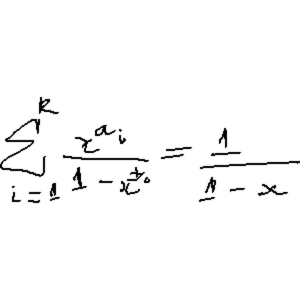 \sum_{i=1}^{k} \frac{x^{a_i}}{1-x^{t_i}} = \frac{1}{1-x}